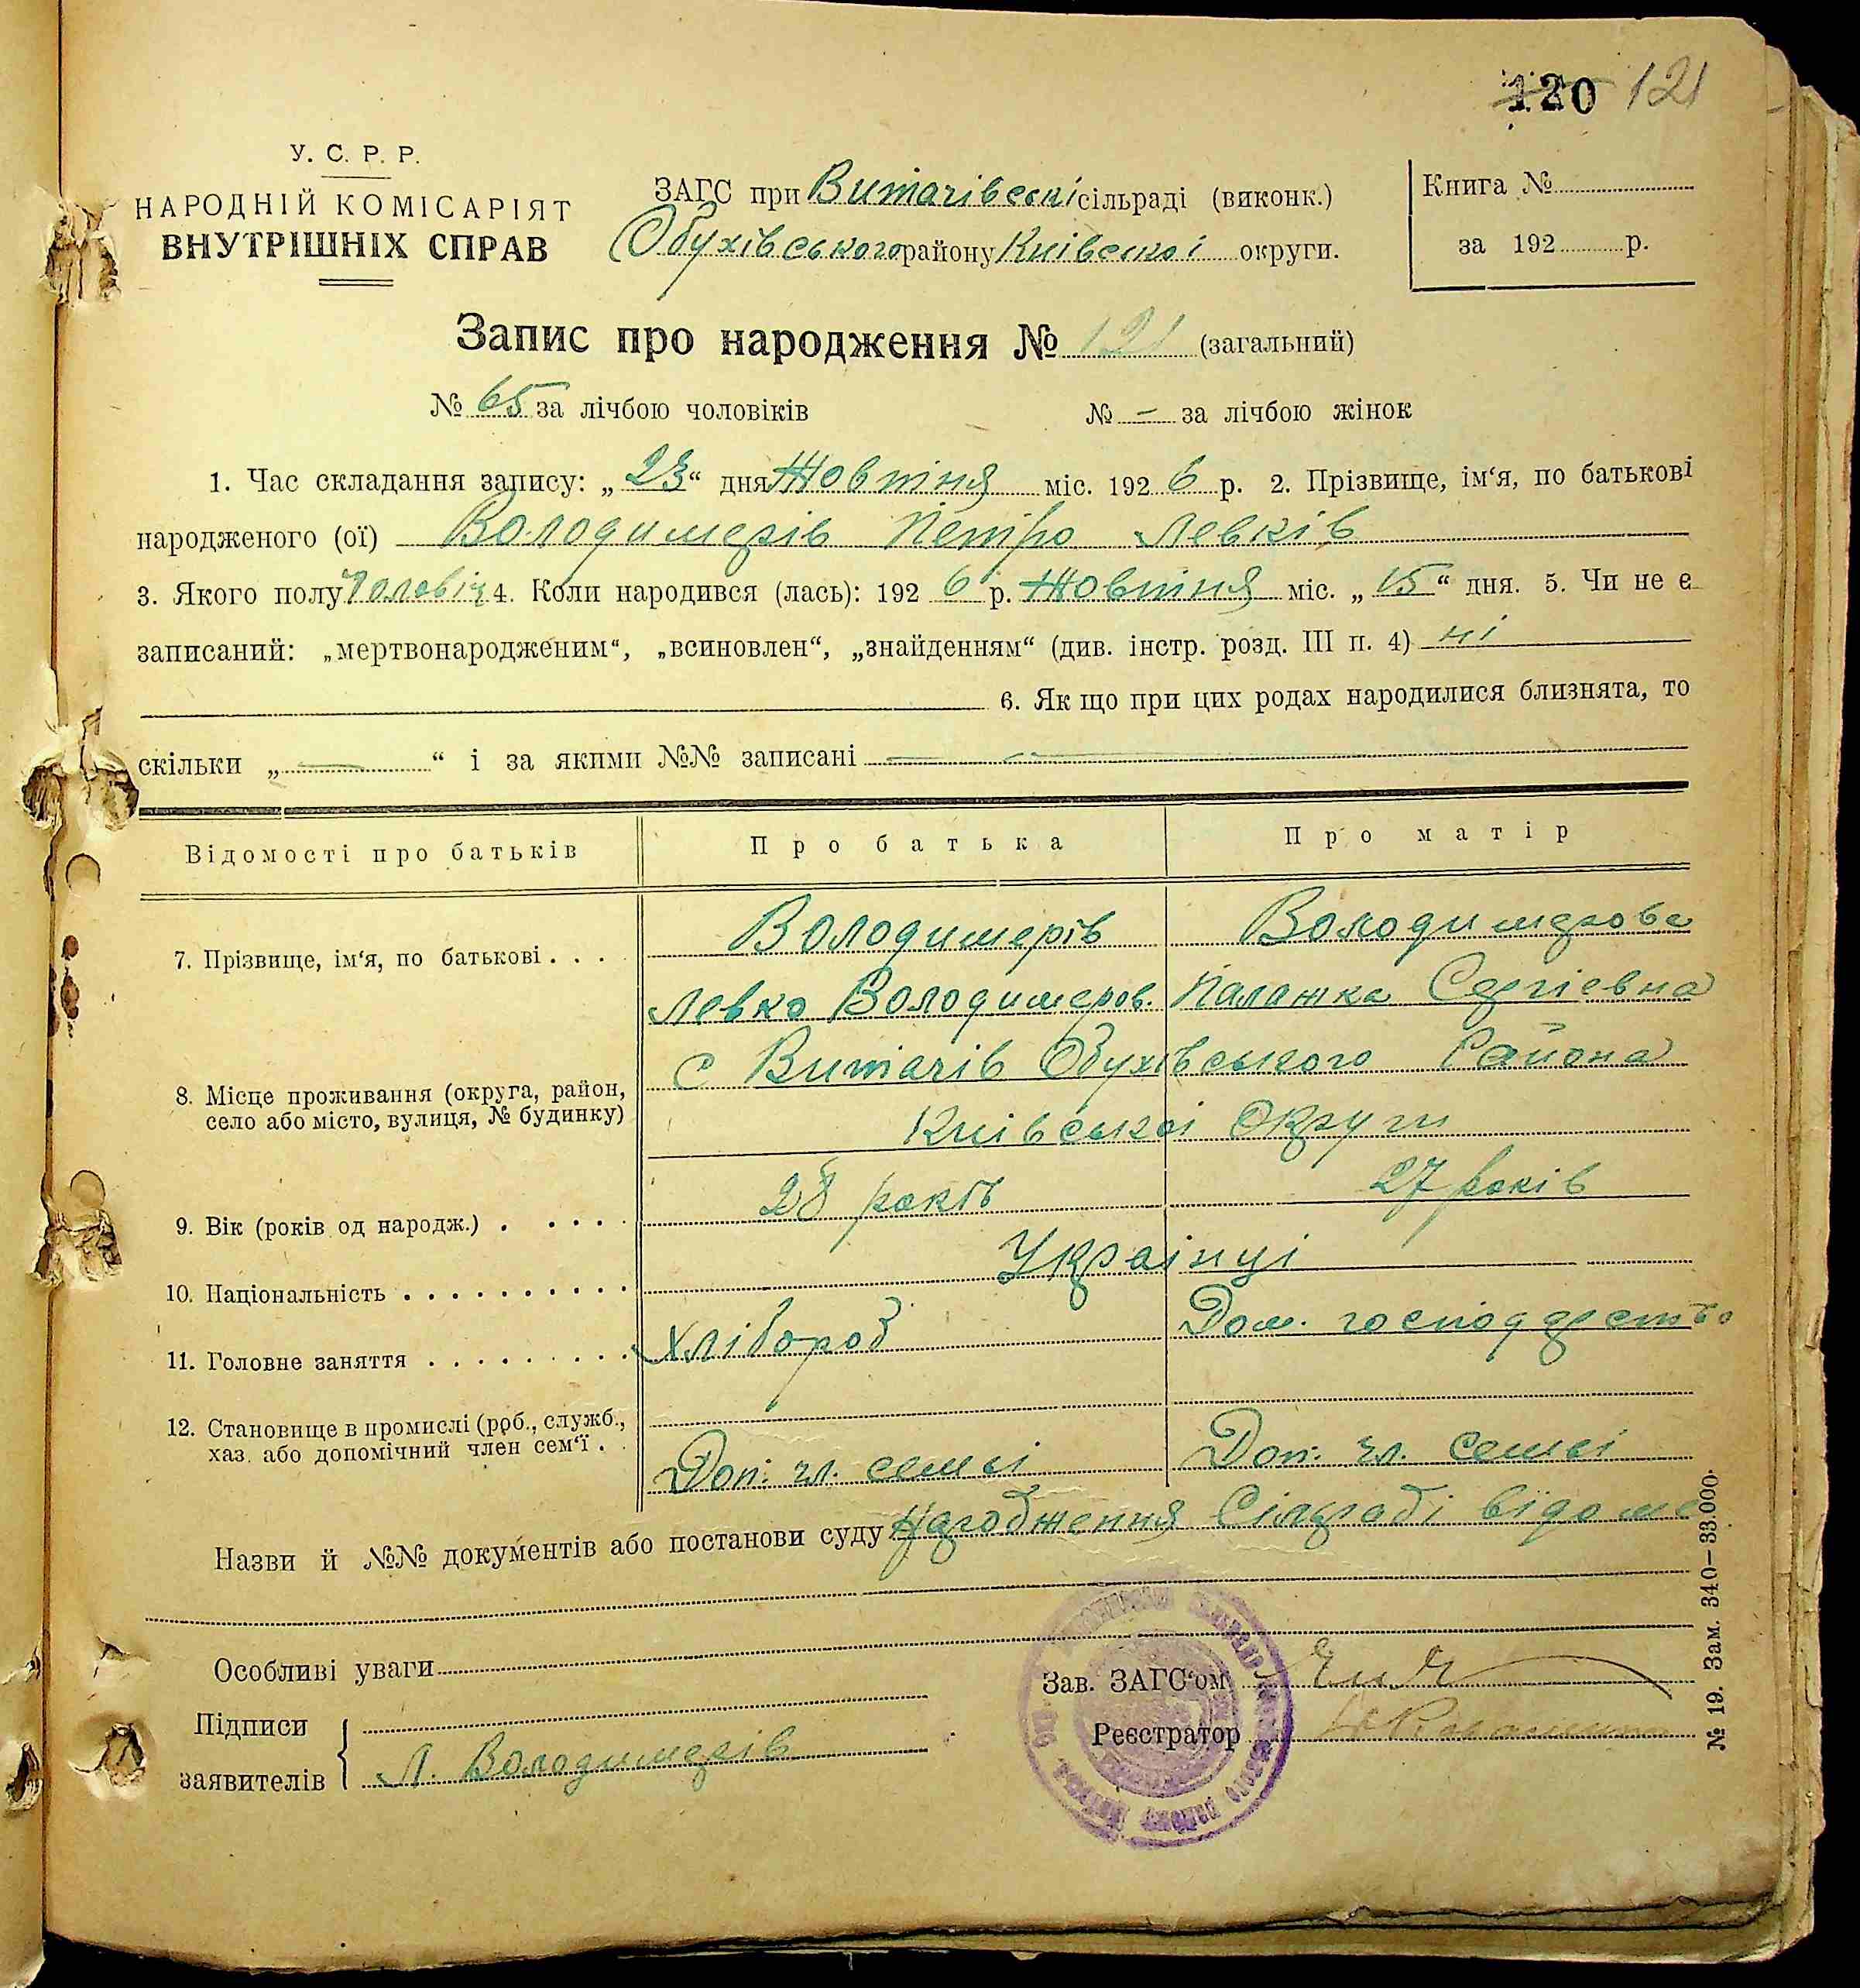 120 121
У. С. Р. Р.
НАРОДНІЙ КОМІСАРІЯТ
ВНУТРІШНІХ СПРАВ
ЗАГС при Витачівскі сільраді (виконк.)
Обухівського району Київскої округи.
Книга №
за 192 р.
Запис про народження № 121 (загальний)
№ 65 за лічбою чоловіків № – за лічбою жінок
1. Час складання запису: „ 23 “ дня Жовтня міс. 192 6 р. 2. Прізвище, ім‘я, по батькові
народженого (ої) Володимерів Петро Левків
3. Якого полу Чоловіч 4. Коли народився (лась): 192 6 р. Жовтня міс. „ 15 “ дня. 5. Чи не є
записаний: „мертвонародженим“, „всиновлен“, „знайденням“ (див. інстр. розд. III п. 4) ні
6. Як що при цих родах народилися близнята, то
скільки „ — “ і за якими №№ записані —
Відомості про батьків Про батька Про матір
7. Прізвище, ім‘я, по батькові . . . Володимерів Володимерова
Левко Володимеров. Палажка Сергіевна
8. Місце проживання (округа, район, село або місто, вулиця, № будинку) с Витачів Обухівського Района
Київської Округи
9. Вік (років од народж.) . . . . . 28 років 27 років
10. Національність . . . . . . . . . . Українці
11. Головне заняття . . . . . . . . . Хлібороб Дом. господарство
12. Становище в промислі (роб., служб.,
хаз. або допомічний член сем‘ї . . Доп. чл. семьі Доп. чл. семьі
Назви й №№ документів або постанови суду Сілраді відоме
Особливі уваги
Зав. ЗАГС‘ом
Підписи
заявителів Л. Володимерів
Реєстратор
№ 19. Зам. 340–33.000.